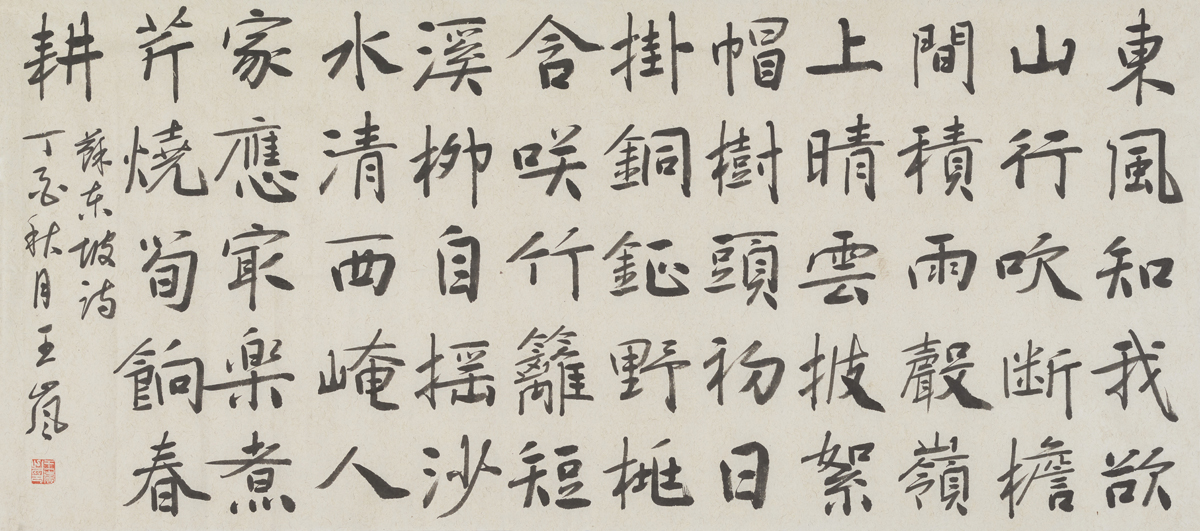 東風知我欲
山行吹断檐
間積雨聲嶺
上晴雲披絮
帽樹頭初日
掛銅鉦野桃
含咲竹籬短
溪柳自揺沙
水清西崦人
家應冣楽煮
芹燒筍餉春
耕
蘇东坡诗
丁酉秋月王嵐